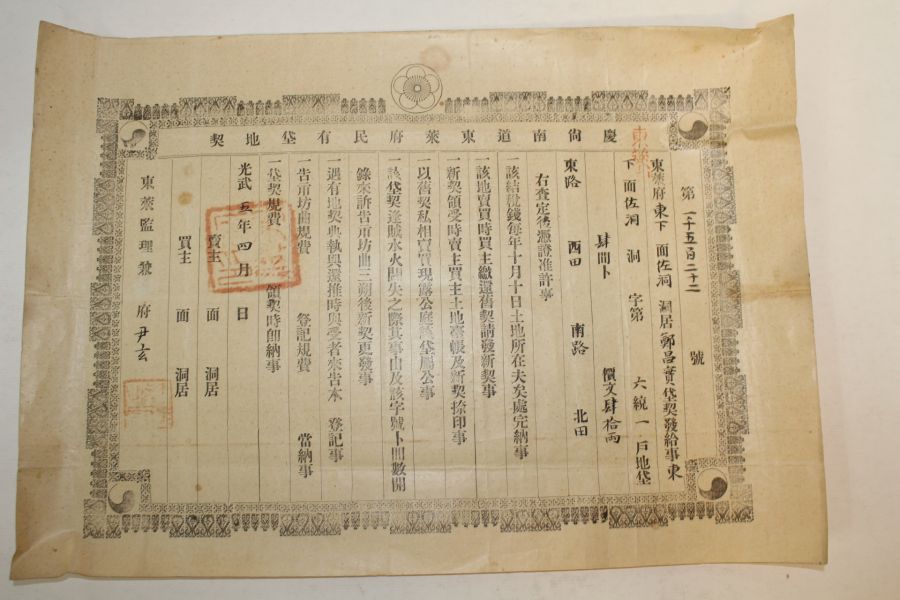 慶尙南道東萊府民有垈地契
第 二千五百二十二 號
東萊府 東下 面 佐洞 洞居 鄭昌實 垈契發給事 東
下 面 佐洞 洞 字第 六統一 戶地垈
肆間卜 價文肆拾兩
東路 西田 南路 北田
右查定後憑證准許事
一該結稅錢每年十月十日土地所在夫矣處完納事
一該地賣買時買主繳還舊契請發新契事
一新契領受時賣主買主土地臺帳及新契捺印事
一以舊契私相賣買現露公庭該垈屬公事
一該垈契逢賊水火閪失之際其事由及該字號卜間數開
錄來訴告市坊曲三朔後新契更發事
一遇有地契典執與還推時與受者來告本 登記事
一告市坊曲規費 登記規費 當納事
一垈契規費 領契時卽納事
光武 五 年 四 月 日
賣主 面 洞居
買主 面 洞居
東萊監理兼 府尹 玄